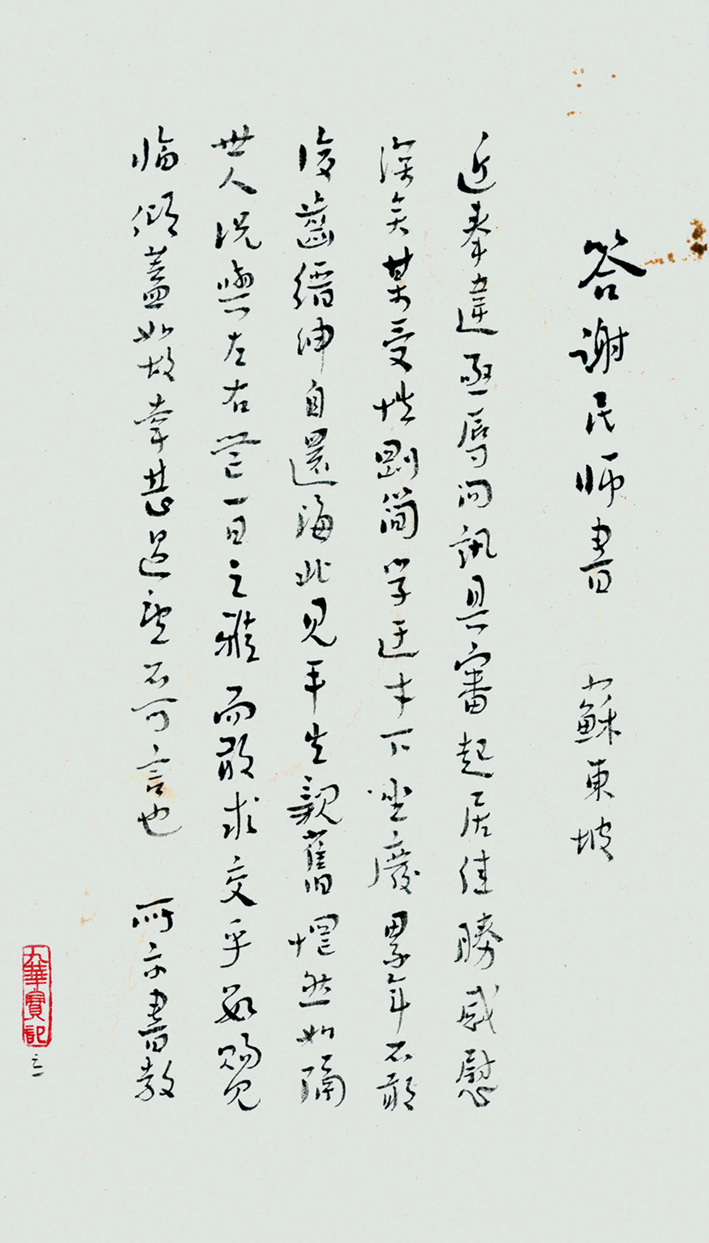 答謝民師書 蘇東坡
近奉違亟辱问訊具審起居佳勝感慰
深矣某受性剛简学迂才下坐廢累年不敢
復齒縉紳自還海北見平生親舊惘然如隔
世人况與左右無一日之雅而敢求交乎數賜見
臨傾蓋如故幸甚過望不可言也 所示書教
九華寶記